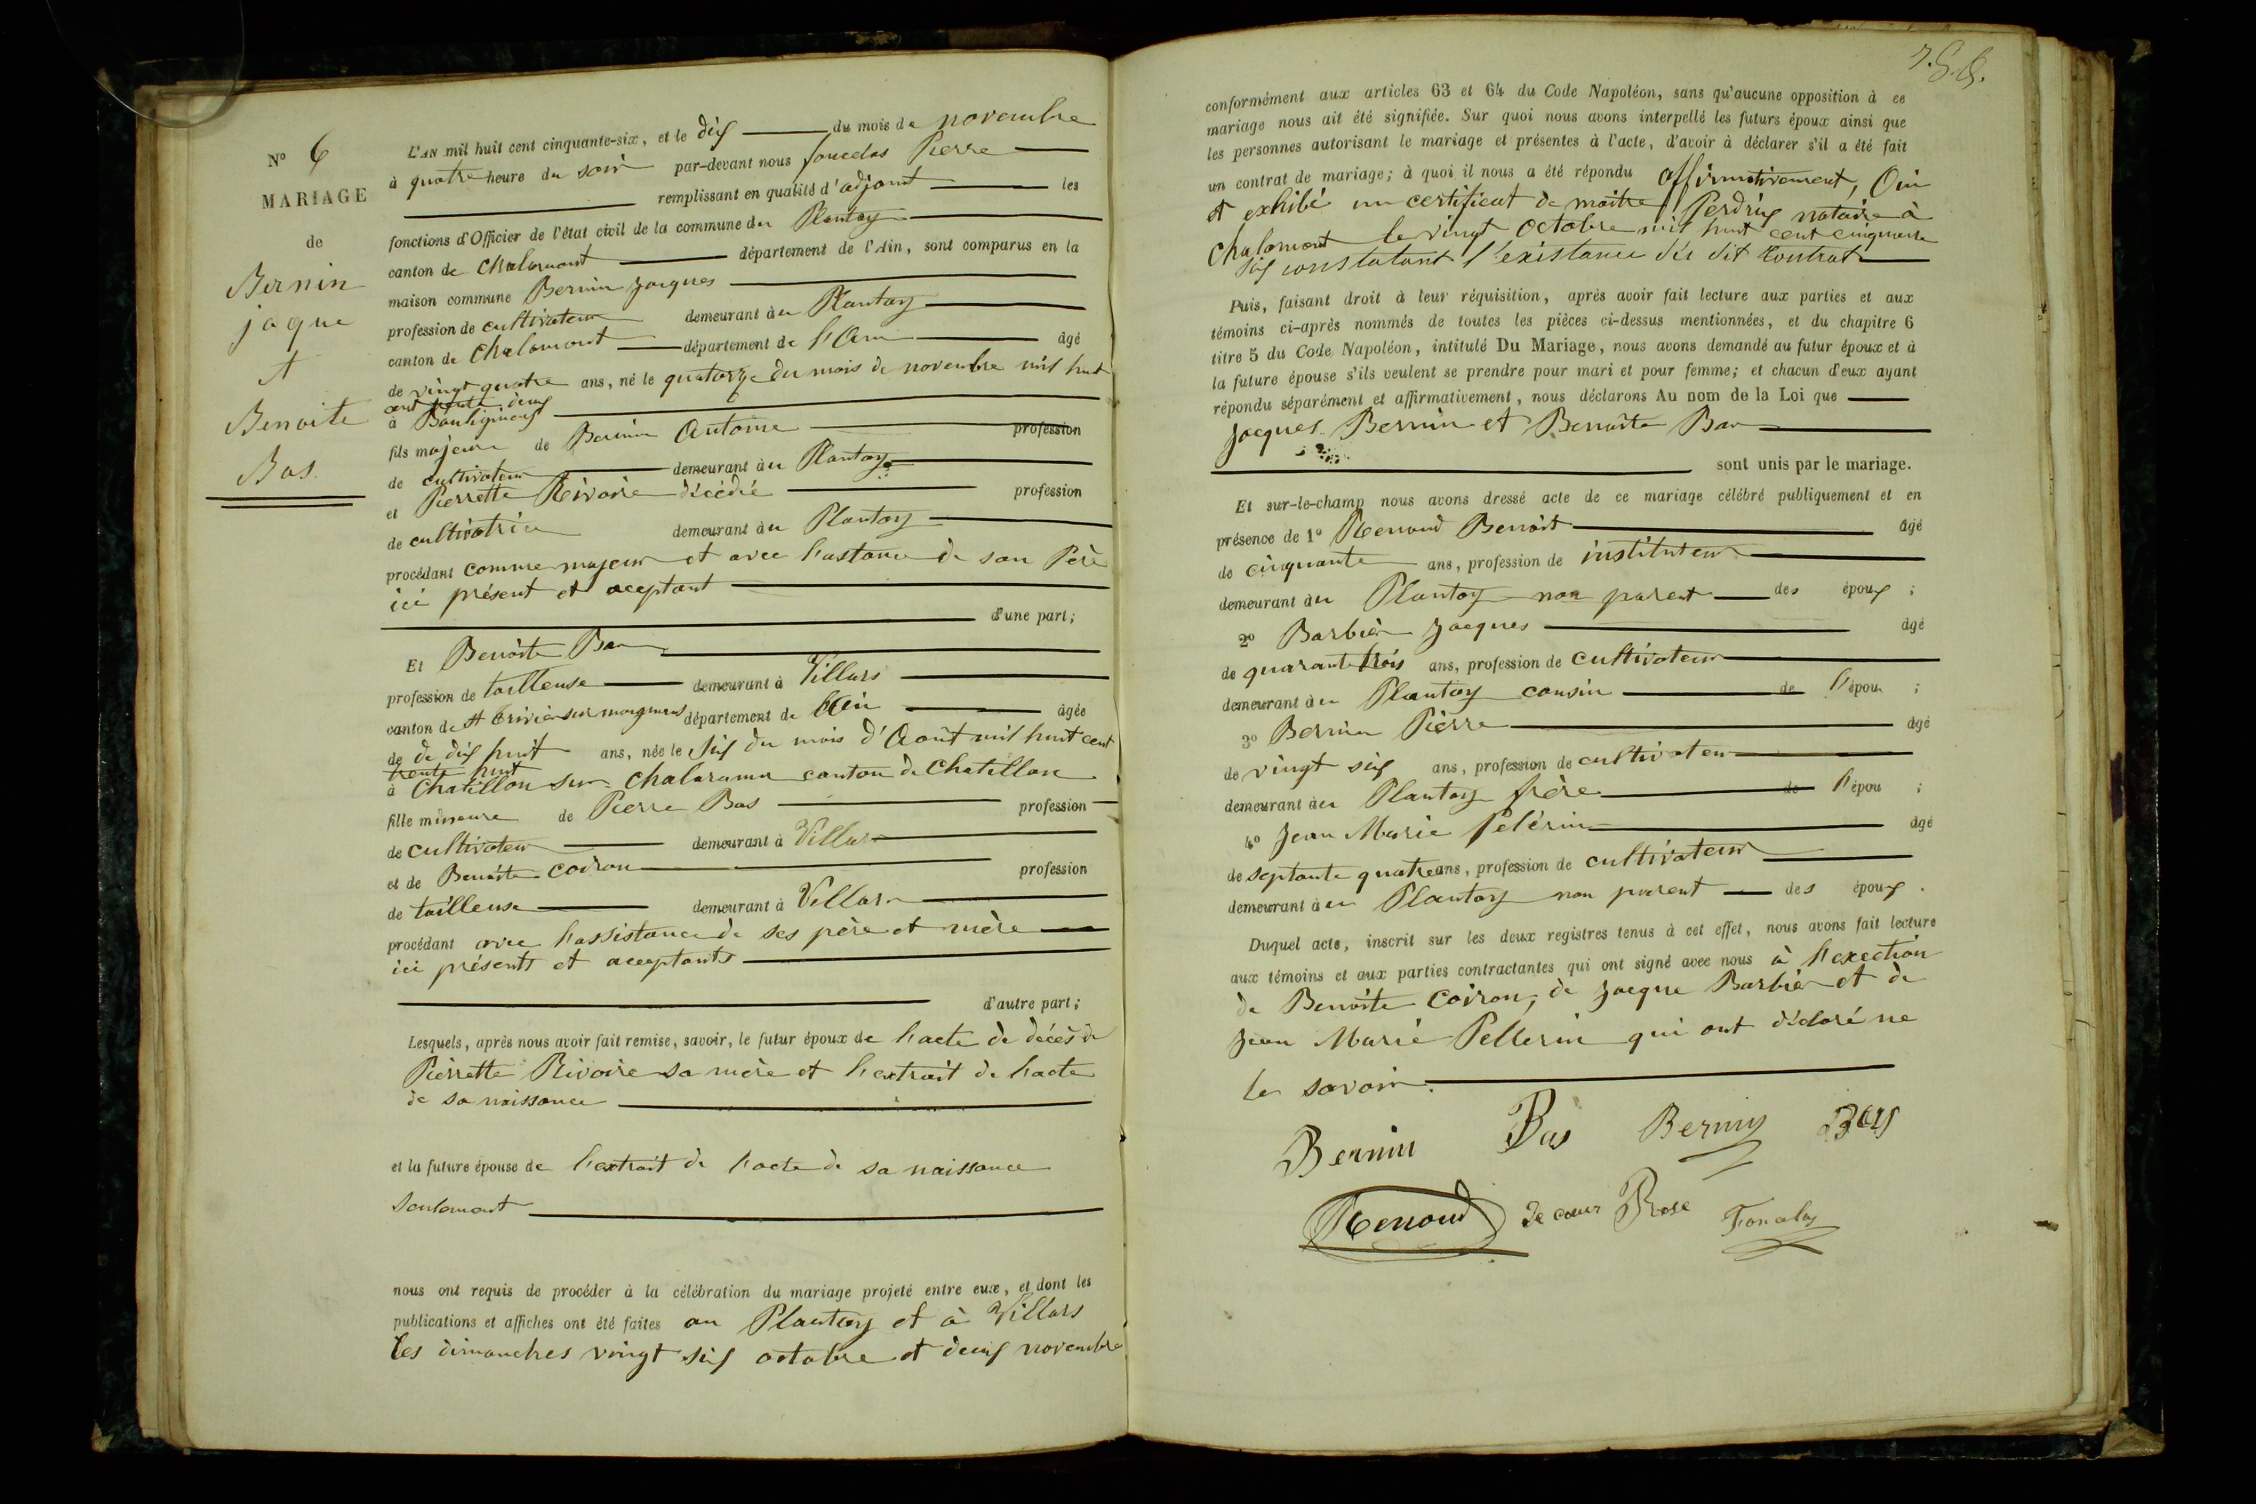 N° 6
MARIAGE
de
Bernin
jaque
et
Benoite
Bas.
L'AN mil huit cent cinquante-six, et le dix du mois de novembre
à quatre heure du soir par-devant nous Pierre
remplissant en qualité d'adjoint les
fonctions d'Officier de l'état civil de la commune du Plantay
canton de chalamont département de l'Ain, sont comparus en la
maison commune Bernin Jacques
profession de cultivateur demeurant à u Plantay
canton de chalamont département de l'Ain âgé
de vingt quatre ans, né le quatorze du mois de novembre mil huit
cent trente deux
à Bouligneux
fils majeur de Bernin Antoine profession
de cultivateur demeurant à u Plantay
et Pierrette Rivoire décédée profession
de cultivatrice demeurant à u Plantay
procédant comme majeur et avec l'astance de son Père
ici présent et aceptant
d'une part;
Et Benoite Bas
profession de tailleuse demeurant à Villars
canton de St trivier sur moignans département de l'Ain âgée
de de dix huit ans, née le six du mois d'Août mil huit cent
trente huit
à Chatillon sur chalaronne canton de Chatillon
fille mineure de Pierre Bas profession
de cultivateur demeurant à Villars
et de Benoite Coiron profession
de tailleuse demeurant à Villars
procédant avec l'assistance de ses père et mère
ici présents et aceptants
d'autre part;
Lesquels, après nous avoir fait remise, savoir, le futur époux de l'acte de décès de
Pierrette Rivoire sa mère et l'extrait de l'acte
de sa naissance
et la future épouse de l'extrait de l'acte de sa naissance
Seulement
nous ont requis de procéder à la célébration du mariage projeté entre eux, et dont les
publications et affiches ont été faites au Plantay et à Villars
les dimanches vingt six octobre et deux novembre
conformément aux articles 63 et 64 du Code Napoléon, sans qu'aucune opposition à ce
mariage nous ait été signifiée. Sur quoi nous avons interpellé les futurs époux ainsi que
les personnes autorisant le mariage et présentes à l'acte, d'avoir à déclarer s'il a été fait
un contrat de mariage; à quoi il nous a été répondu affirmativement, Oui
et exhibé un certificat de maitre Perdrix notaire à
chalamont le vingt octobre mil huit cent cinquante
six constatant l'existance du dit Contrat
Puis, faisant droit à leur réquisition, après avoir fait lecture aux parties et aux
témoins ci-après nommés de toutes les pièces ci-dessus mentionnées, et du chapitre 6
titre 5 du Code Napoléon, intitulé Du Mariage, nous avons demandé au futur époux et à
la future épouse s'ils veulent se prendre pour mari et pour femme; et chacun d'eux ayant
répondu séparément et affirmativement, nous déclarons Au nom de la Loi que
Jacques Bernin et Benoite Bas
sont unis par le mariage.
Et sur-le-champ nous avons dressé acte de ce mariage célébré publiquement et en
présence de 1° Renoud Benoit âgé
de cinquante ans, profession de instituteur
demeurant à u Plantay non parent des époux ;
2° Barbier Jacques âgé
de quarante trois ans, profession de cultivateur
demeurant à u Plantay cousin de l'épou ;
3° Bernin Pierre âgé
de vingt six ans, profession de cultivateur
demeurant à u Plantay frère de l'épou ;
4° Jean Marie Pelérin âgé
de septante quatre ans, profession de cultivateur
demeurant à u Plantay non parent des époux.
Duquel acte, inscrit sur les deux registres tenus à cet effet, nous avons fait lecture
aux témoins et aux parties contractantes qui ont signé avec nous à l'exection
de Benoite Coiron, de Jacque Barbier et de
Jean Marie Pellerin qui ont déclaré ne
le savoir.
Bernin Bas Bernin Bas
Renoud